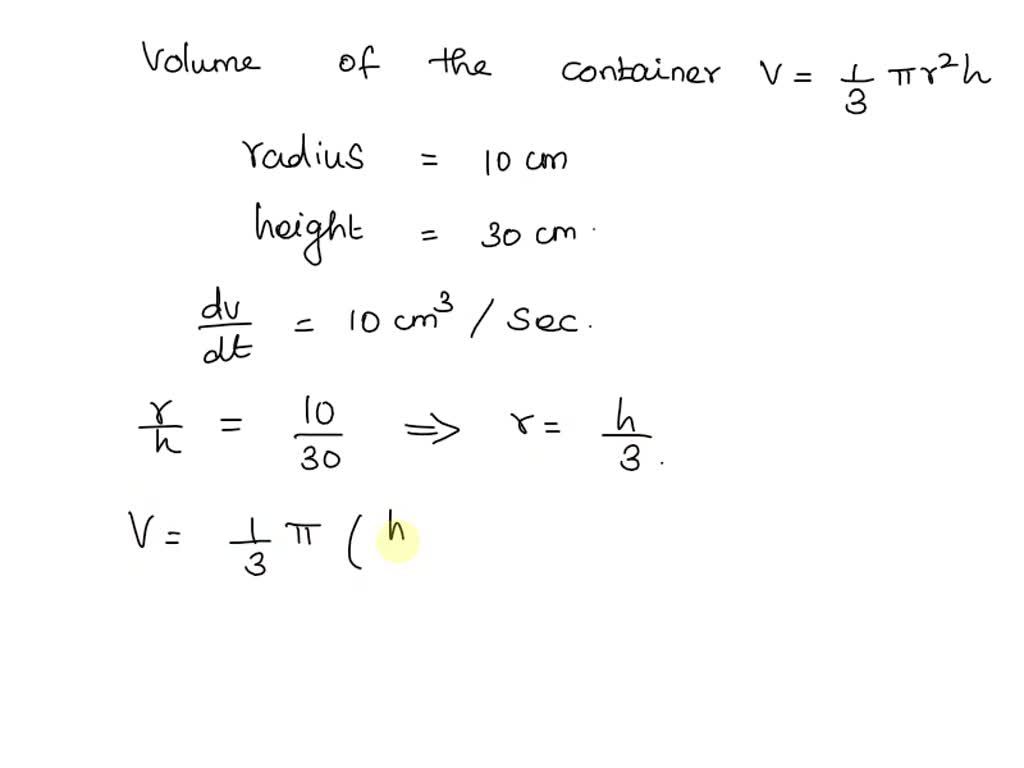 Volume of the container V = 1/3 πr²h
radius = 10 cm
height = 30 cm.
dv/dt = 10 cm³ / sec.
r/h = 10/30 ⇒ r = h/3.
V = 1/3 π ( h